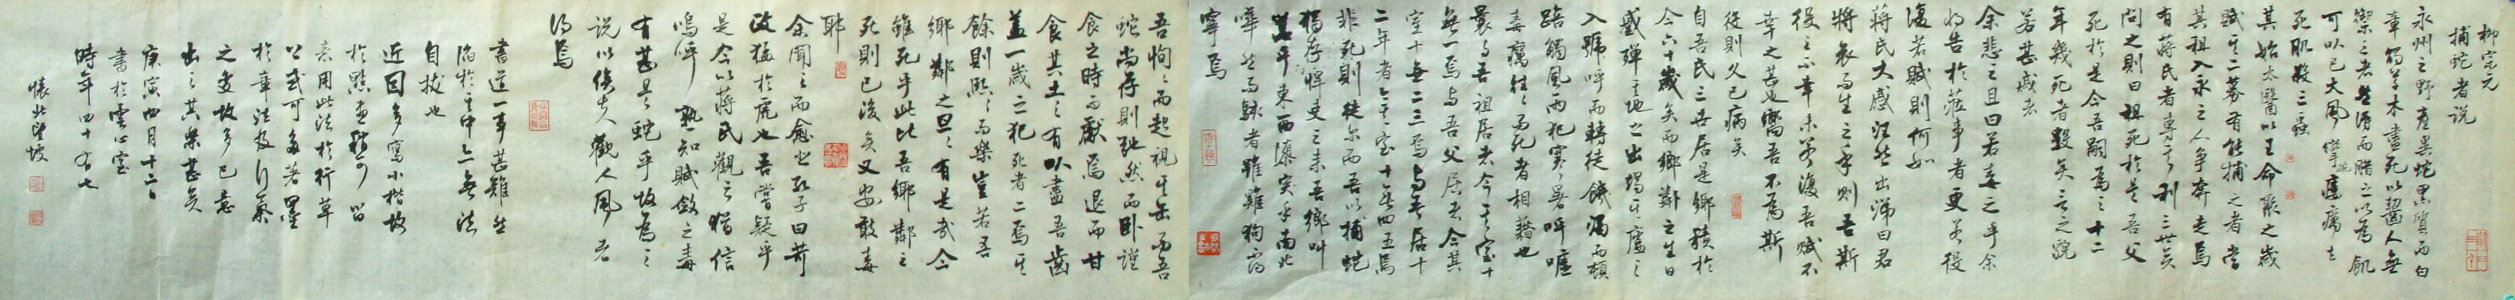 柳宗元
捕蛇者说
永州之野產異蛇黑質而白
章觸草木盡死以齧人無
禦之者然得而腊之以為餌
可以已大風攣踠瘻癘去
死肌殺三蟲
其始太醫以王命聚之歲
賦其二募有能捕之者當
其租入永之人争奔走焉
有蔣氏者專其利三世矣
問之則曰祖死於是吾父
死於是今吾嗣為之十二
年幾死者數矣言之貌
若甚戚者
余悲之且曰若毒之乎余
將告於蒞事者更若役
復若賦則何如
蔣氏大戚汪然出涕曰君
將哀而生之乎則吾斯
役之不幸未若復吾賦不
幸之甚也嚮吾不為斯
役則久已病矣
自吾氏三世居是鄉積於
今六十歲矣而鄉鄰之生日
蹙殫其地之出竭其廬之
入號呼而轉徙餓渴而頓
踣觸風雨犯寒暑呼噓
毒癘往々而死者相藉也
曩與吾祖居者今其室十
無一焉與吾父居者今其
室十無二三焉與吾居十
二年者今其室十無四五焉
非死則徙尔而吾以捕蛇
獨存悍吏之来吾鄉叫
囂乎東西隳突乎南北
嘩然而駭者雖雞狗不得
寧焉
吾恂々而起視其缶而吾
蛇尚存則弛然而卧謹
食之時而獻焉退而甘
食其土之有以盡吾齒
蓋一歲之犯死者二焉其
餘則熙々而樂豈若吾
鄉鄰之旦々有是哉今
雖死乎此比吾鄉鄰之
死則已後矣又安敢毒
耶
余聞之而愈悲孔子曰苛
政猛於虎也吾嘗疑乎
是今以蔣氏觀之猶信
嗚呼孰知賦斂之毒
有甚是蛇乎故為之
说以俟夫觀人風者
得焉
書道一事甚難然
陷於其中亦無法
自拔也
近因多寫小楷故
於點畫
素用此法於行草
於章法及行氣
之變故多已意
出之其樂甚矣
庚寅四月十二日
書於雲心室
時年四十有七